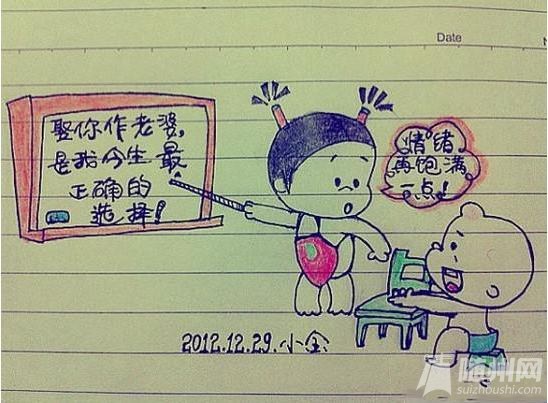 Date
娶你作老婆,
是我今生最
正确的
选择!
情绪
再饱满
一点!
2012.12.29.小全
随州网
suizhoushi.com